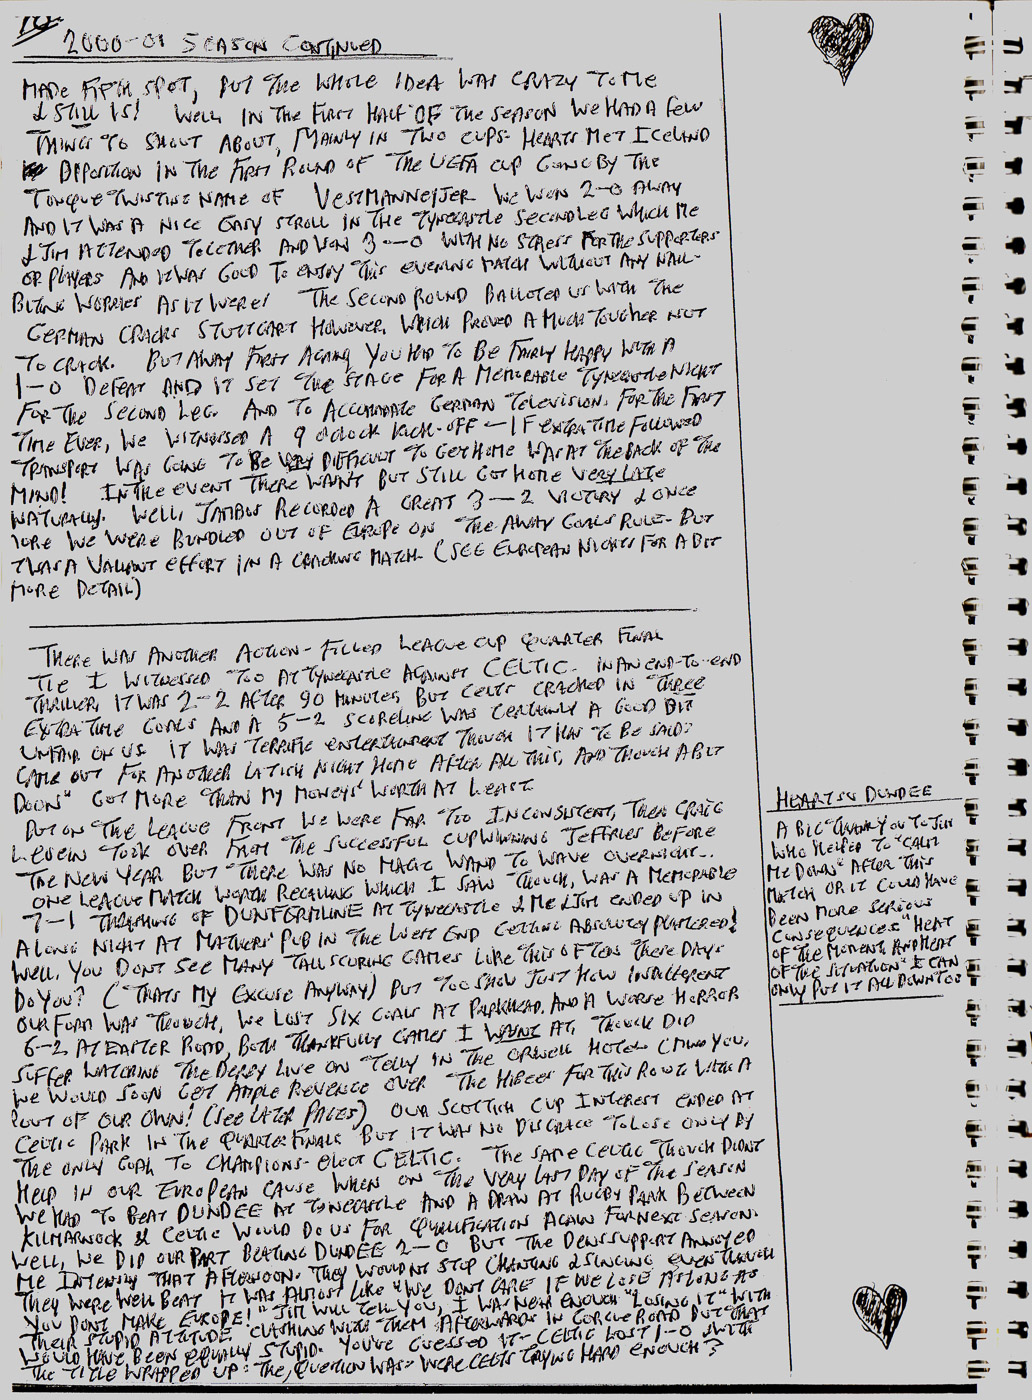 10
2000-01 SEASON CONTINUED
MADE FIFTH SPOT, BUT THE WHOLE IDEA WAS CRAZY TO ME
& STILL IS! WELL IN THE FIRST HALF OF THE SEASON WE HAD A FEW
THINGS TO SHOUT ABOUT, MAINLY IN TWO CUPS- HEARTS MET ICELAND
OPPOSITION IN THE FIRST ROUND OF THE UEFA CUP GOING BY THE
TONGUE TWISTING NAME OF VESTMANNEYJER WE WON 2-0 AWAY
AND IT WAS A NICE EASY STROLL IN THE TYNECASTLE SECOND LEG WHICH ME
& JIM ATTENDED TOGETHER AND WON 3-0 WITH NO STRESS FOR THE SUPPORTERS
OR PLAYERS AND IT WAS GOOD TO ENJOY THIS EVENING MATCH WITHOUT ANY NAIL-
BITING WORRIES AS IT WERE! THE SECOND ROUND BALLOTED US WITH THE
GERMAN CRACKS STUTTGART HOWEVER, WHICH PROVED A MUCH TOUGHER NUT
TO CRACK. BUT AWAY FIRST AGAIN, YOU HAD TO BE FAIRLY HAPPY WITH A
1-0 DEFEAT AND IT SET THE STAGE FOR A MEMORABLE TYNECASTLE NIGHT
FOR THE SECOND LEG. AND TO ACCOMADATE GERMAN TELEVISION, FOR THE FIRST
TIME EVER, WE WITNESSED A 9 O'CLOCK KICK-OFF - IF EXTRA TIME FOLLOWED
TRANSPORT WAS GOING TO BE VERY DIFFICULT TO GET HOME WAS AT THE BACK OF THE
MIND! IN THE EVENT THERE WASNT BUT STILL GOT HOME VERY LATE
NATURALLY. WELL, JAMBOS RECORDED A GREAT 3-2 VICTORY & ONCE
MORE WE WERE BUNDLED OUT OF EUROPE ON THE AWAY GOALS RULE- BUT
TWAS A VALIANT EFFORT IN A CRACKING MATCH (SEE EUROPEAN NIGHTS FOR A BIT
MORE DETAIL)
THERE WAS ANOTHER ACTION-FILLED LEAGUE CUP QUARTER FINAL
TIE I WITNESSED TOO AT TYNECASTLE AGAINST CELTIC- IN AN END-TO-END
THRILLER, IT WAS 2-2 AFTER 90 MINUTES, BUT CELTS CRACKED IN THREE
EXTRA TIME GOALS AND A 5-2 SCORELINE WAS CERTAINLY A GOOD BIT
UNFAIR ON US IT WAS TERRIFIC ENTERTAINMENT THOUGH IT HAS TO BE SAID!
CAME OUT FOR ANOTHER LATISH NIGHT HOME AFTER ALL THIS, AND THOUGH A BIT
DOON" GOT MORE THAN MY MONEYS' WORTH AT LEAST
BUT ON THE LEAGUE FRONT WE WERE FAR TOO INCONSISTENT, THEN CRAIG
LEVEIN TOOK OVER FROM THE SUCCESSFUL CUPWINNING JEFFRIES BEFORE
THE NEW YEAR BUT THERE WAS NO MAGIC WAND TO WAVE OVERNIGHT...
ONE LEAGUE MATCH WORTH RECALLING WHICH I SAW THOUGH, WAS A MEMORABLE
7-1 THRASHING OF DUNFERMLINE AT TYNECASTLE & ME & JIM ENDED UP IN
A LONG NIGHT AT MATHERS' PUB IN THE WEST END GETTING ABSOLUTELY PLASTERED!
WELL, YOU DONT SEE MANY TALL SCORING GAMES LIKE THIS OFTEN THESE DAYS
DO YOU? (THATS MY EXCUSE ANYWAY) BUT TO SHOW JUST HOW INDIFFERENT
OUR FORM WAS THOUGH, WE LOST SIX GOALS AT PARKHEAD, AND A WORSE HORROR
6-2 AT EASTER ROAD, BOTH THANKFULLY GAMES I WASNT AT, THOUGH DID
SUFFER WATCHING THE DERBY LIVE ON TELLY IN THE ORWELL HOTEL (MIND YOU,
WE WOULD SOON GET AMPLE REVENGE OVER THE HIBEES FOR THIS ROUT WITH A
ROUT OF OUR OWN! (SEE LATER PAGES) OUR SCOTTISH CUP INTEREST ENDED AT
CELTIC PARK IN THE QUARTER FINALS BUT IT WAS NO DISGRACE TO LOSE ONLY BY
THE ONLY GOAL TO CHAMPIONS-ELECT CELTIC. THE SAME CELTIC THOUGH DIDNT
HELP IN OUR EUROPEAN CAUSE WHEN ON THE VERY LAST DAY OF THE SEASON
WE HAD TO BEAT DUNDEE AT TYNECASTLE AND A DRAW AT RUGBY PARK BETWEEN
KILMARNOCK & CELTIC WOULD DO US FOR QUALIFICATION AGAIN FOR NEXT SEASON.
WELL, WE DID OUR PART BEATING DUNDEE 2-0 BUT THE DENS SUPPORT ANNOYED
ME INTENSELY THAT AFTERNOON. THEY WOULDNT STOP CHANTING & SINGING EVEN THOUGH
THEY WERE WELL BEAT IT WAS ALMOST LIKE "WE DONT CARE IF WE LOSE AS LONG AS
YOU DONT MAKE EUROPE!" JIM WILL TELL YOU, I WAS NEAR ENOUGH "LOSING IT" WITH
THEIR STUPID ATTITUDE CLASHING WITH THEM AFTERWARDS IN GORGIE ROAD BUT THAT
WOULD HAVE BEEN EQUALLY STUPID. YOU'VE GUESSED IT- CELTIC LOST 1-0 WITH
THE TITLE WRAPPED UP - THE QUESTION WAS- WERE CELTS TRYING HARD ENOUGH?
HEARTS V DUNDEE
A BIG THANKYOU TO JIM
WHO HELPED TO "CALM
ME DOWN" AFTER THIS
MATCH OR IT COULD HAVE
BEEN MORE SERIOUS
CONSEQUENCES "HEAT
OF THE MOMENT, AND HEAT
OF THE SITUATION" I CAN
ONLY PUT IT ALL DOWN TOO